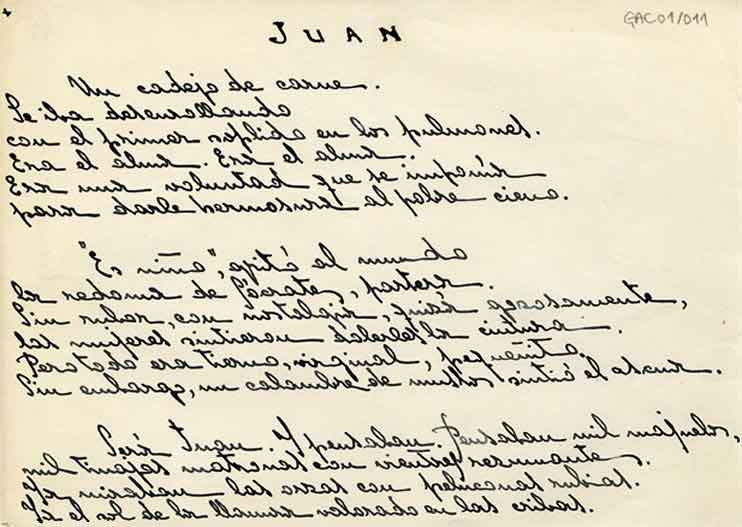 GAC01/011
JUAN
Un cadejo de carne.
Se iba desenrollando
con el primer soplido en los pulmones.
Era el alma. Era el alma..
Era una voluntad que se imponía
para darle hermosura al pobre cieno.
"Es niño", gritó al mundo
la redoma de Sócrates, partera.
Sin rubor, con nostalgia, quizá gozosamente,
las mujeres sintieron dolerles la cintura.
Pero todo era tierno, virginal, pequeñito.
Sin embargo, un calambre de muslos sintió el
Será Juan. Y pensaban. Pensaban mil majuelos,
mil tinajas matronas con vientres rezumantes.
Ya miraban las orzas con rubias.
Ya el sol de la llanura valorado en las cribas.